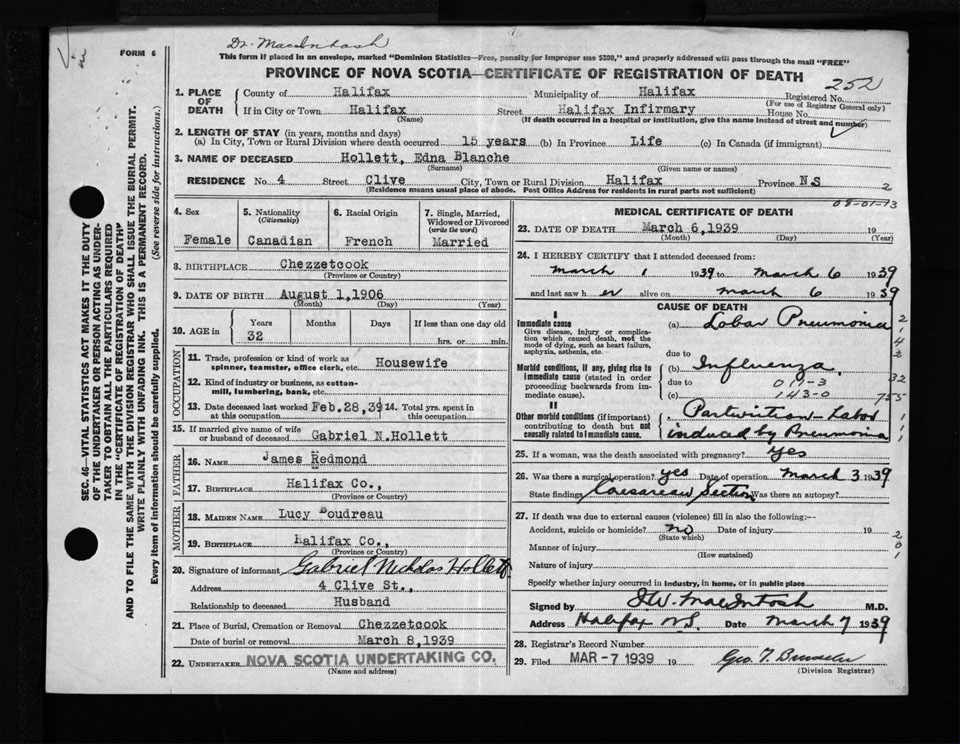 Dr. MacIntosh
FORM 6
This form if placed in an envelope, marked "Dominion Statistics—Free, penalty for improper use $300," and properly addressed will pass through the mail "FREE"
PROVINCE OF NOVA SCOTIA—CERTIFICATE OF REGISTRATION OF DEATH
252
1. PLACE OF DEATH
County of Halifax Municipality of Halifax Registered No.
(For use of Registrar General only)
If in City or Town Halifax Street Halifax Infirmary House No.
(Name) (If death occurred in a hospital or institution, give the name instead of street and number)
2. LENGTH OF STAY (in years, months and days)
(a) In City, Town or Rural Division where death occurred 15 years (b) In Province Life (c) In Canada (if immigrant)
3. NAME OF DECEASED Hollett, Edna Blanche
(Surname) (Given name or names)
RESIDENCE No. 4 Street Clive City, Town or Rural Division Halifax Province N.S
(Residence means usual place of abode. Post Office Address for residents in rural parts not sufficient)
2
08-01-13
4. Sex Female
5. Nationality (Citizenship) Canadian
6. Racial Origin French
7. Single, Married, Widowed or Divorced (write the word) Married
8. BIRTHPLACE Chezzetcook
(Province or Country)
9. DATE OF BIRTH August 1,1906
(Month) (Day) (Year)
10. AGE in Years Months Days If less than one day old
32 hrs. or min.
OCCUPATION
11. Trade, profession or kind of work as spinner, teamster, office clerk, etc. Housewife
12. Kind of industry or business, as cotton-mill, lumbering, bank, etc.
13. Date deceased last worked at this occupation Feb.28,39 14. Total yrs. spent in this occupation
15. If married give name of wife or husband of deceased Gabriel N.Hollett
FATHER
16. Name James Redmond
17. Birthplace Halifax Co.,
(Province or Country)
MOTHER
18. MAIDEN NAME Lucy Boudreau
19. BIRTHPLACE Halifax Co.,
(Province or Country)
20. Signature of informant Gabriel Nicholas Hollett
Address 4 Clive St.,
Relationship to deceased Husband
21. Place of Burial, Cremation or Removal Chezzetcook
Date of burial or removal March 8,1939
22. UNDERTAKER NOVA SCOTIA UNDERTAKING CO.
(Name and address)
MEDICAL CERTIFICATE OF DEATH
23. DATE OF DEATH March 6,1939 19
(Month) (Day) (Year)
24. I HEREBY CERTIFY that I attended deceased from:
March 1 1939 to March 6 1939
and last saw her alive on March 6 1939
CAUSE OF DEATH
I
Immediate cause
Give disease, injury or complication which caused death, not the mode of dying, such as heart failure, asphyxia, asthenia, etc.
(a) Lobar Pneumonia
due to
Morbid conditions, if any, giving rise to immediate cause (stated in order proceeding backwards from immediate cause).
(b) Influenza
due to 011-3
(c) 143-0
II
Other morbid conditions (if important) contributing to death but not causally related to immediate cause.
Parturition - Labor
induced by Pneumonia
25. If a woman, was the death associated with pregnancy? Yes
26. Was there a surgical operation? Yes Date of operation March 3 1939
State findings Caesarean Section Was there an autopsy?
27. If death was due to external causes (violence) fill in also the following:—
Accident, suicide or homicide? no Date of injury 19
(State which)
Manner of injury
(How sustained)
Nature of injury
Specify whether injury occurred in industry, in home, or in public place
Signed by MacIntosh M.D.
Address Halifax N.S. Date March 7 1939
28. Registrar's Record Number
29. Filed MAR -7 1939 19
(Division Registrar)
SEC. 46—VITAL STATISTICS ACT MAKES IT THE DUTY
OF THE UNDERTAKER OR PERSON ACTING AS UNDER-
TAKER TO OBTAIN ALL THE PARTICULARS REQUIRED
IN THE "CERTIFICATE OF REGISTRATION OF DEATH"
AND TO FILE THE SAME WITH THE DIVISION REGISTRAR WHO SHALL ISSUE THE BURIAL PERMIT.
WRITE PLAINLY WITH UNFADING INK. THIS IS A PERMANENT RECORD.
Every item of information should be carefully supplied. (See reverse side for instructions.)